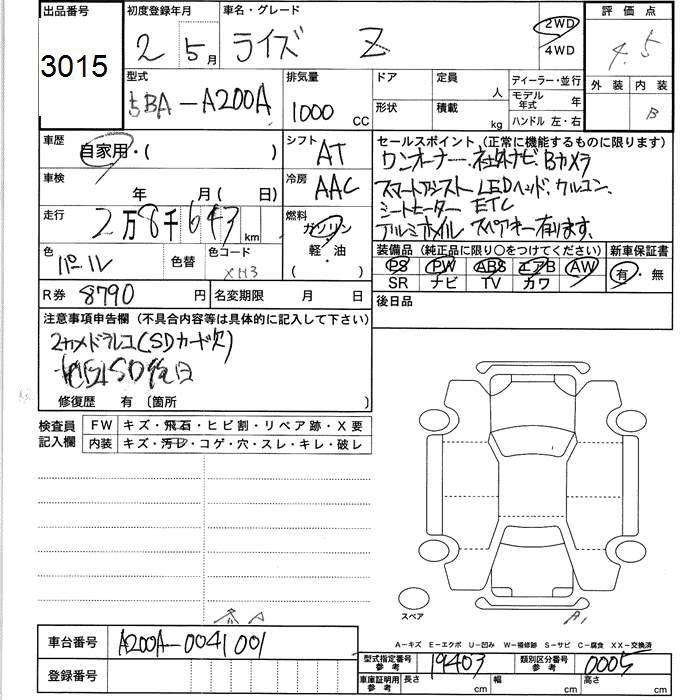 出品番号 初度登録年月 車名・グレード 評価点
3015 2 5月 ライズ Z 2WD 4.5
4WD
型式 排気量 ドア 定員 人 ディーラー・並行 外装 内装
5BA-A200A 1000 CC 形状 積載 kg モデル年式 年 B
ハンドル 左・右
車歴 自家用・( ) シフト AT セールスポイント (正常に機能するものに限ります)
ワンオーナー、社外ナビ、Bカメラ
車検 年 月( 日) 冷房 AAC スマートアシスト LEDヘッド、クルコン、
シートヒーター ETC
走行 2万8千643km 燃料 ガソリン・軽・油 ( ) アルミホイル スペアキー有ります。
色 パール 色替 色コード XH3 装備品 (純正品に限り○をつけてください) 新車保証書
PS PW ABS エアB AW 有・無
SR ナビ TV カワ
R券 8790円 名変期限 月 日 後日品
注意事項申告欄 (不具合内容等は具体的に記入して下さい)
2カメドラレコ(SDカード欠)
修復歴 有 〔箇所 〕
検査員記入欄 FW キズ・飛石・ヒビ割・リペア跡・X要
内装 キズ・汚レ・コゲ・穴・スレ・キレ・破レ
スペア
A-キズ E-エクボ U-凹み W-補修跡 S-サビ C-腐食 XX-交換済
車台番号 A200A-0041001 型式指定番号 参考 19403 類別区分番号 参考 0005
登録番号 車庫証明用 参考 長さ cm 幅 cm 高さ cm